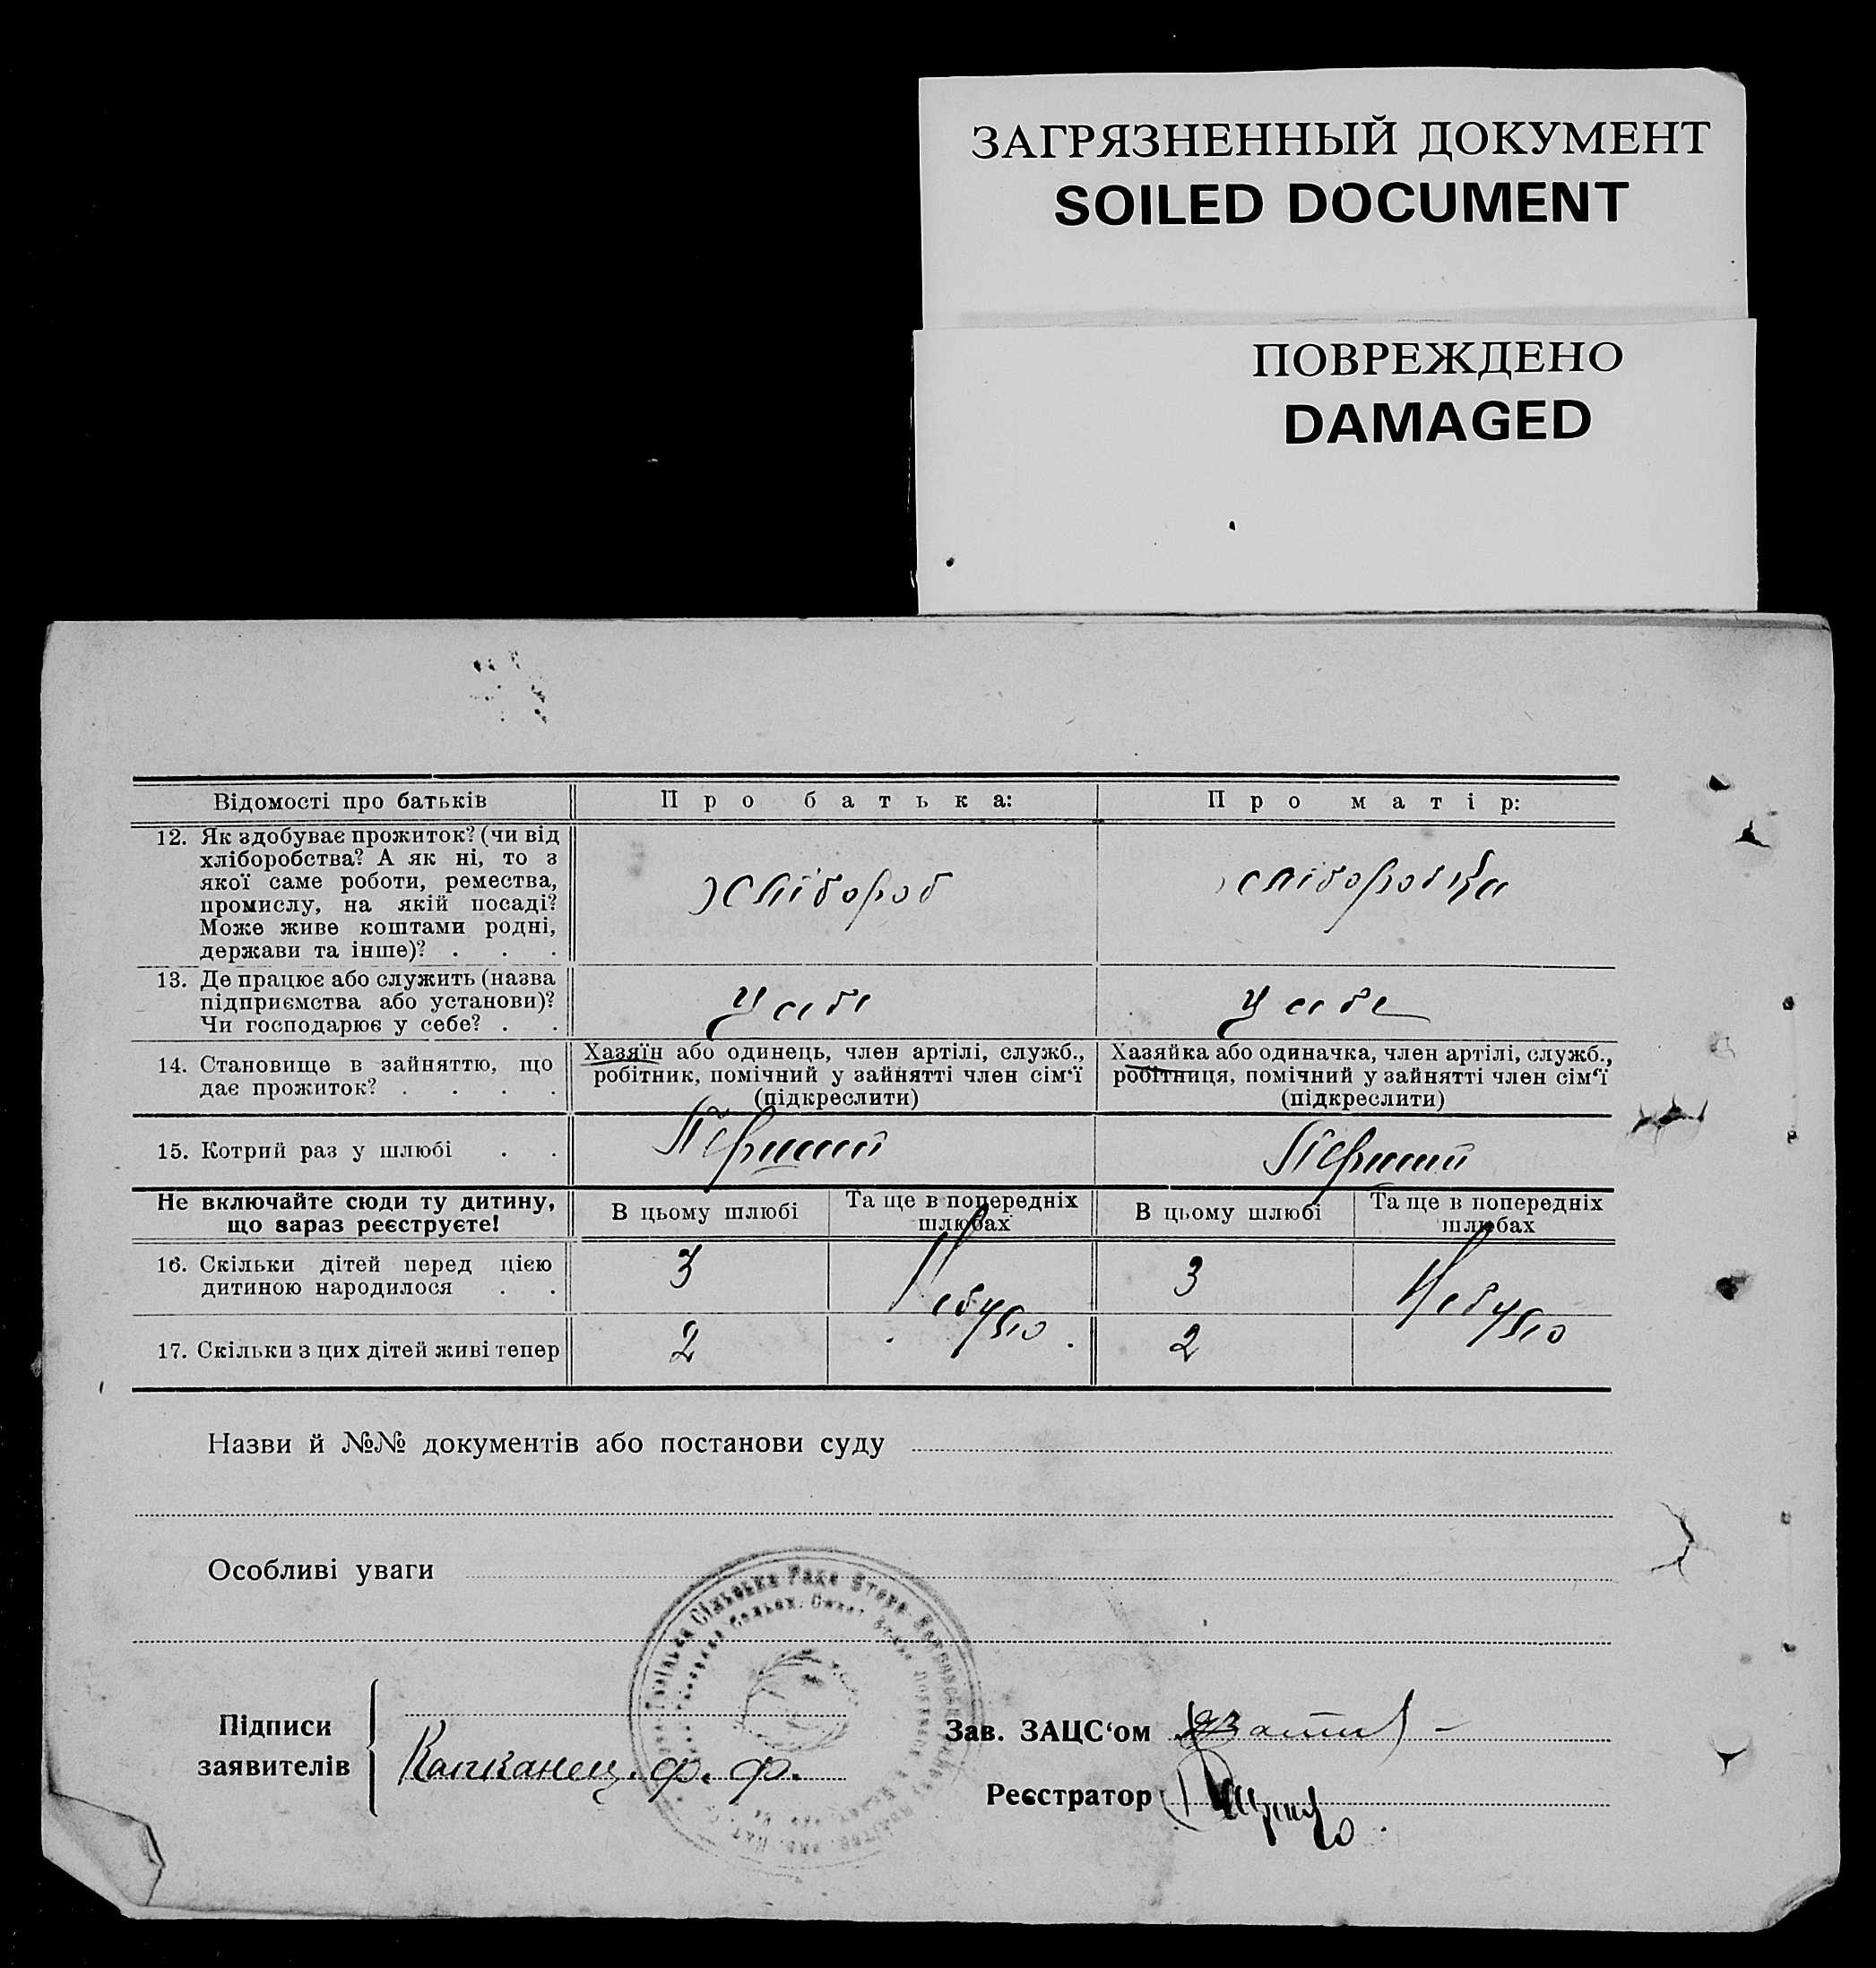 ЗАГРЯЗНЕННЫЙ ДОКУМЕНТ
SOILED DOCUMENT
ПОВРЕЖДЕНО
DAMAGED
Відомості про батьків
Про батька:
Про матір:
12. Як здобуває прожиток? (чи від
хліборобства? А як ні, то з
якої саме роботи, ремества,
промислу, на якій посаді?
Може живе коштами родні,
держави та інше)? . . .
хлібороб
хліборобка
13. Де працює або служить (назва
підприємства або установи)?
Чи господарює у себе? . .
У себе
У себе
14. Становище в зайняттю, що
дає прожиток? . . . .
Хазяїн або одинець, член артілі, служб.,
робітник, помічний у зайнятті член сім'ї
(підкреслити)
Хазяйка або одиначка, член артілі, служб.,
робітниця, помічний у зайнятті член сім'ї
(підкреслити)
15. Котрий раз у шлюбі . .
Перший
Перший
Не включайте сюди ту дитину,
що зараз реєструєте!
В цьому шлюбі
Та ще в попередніх
шлюбах
В цьому шлюбі
Та ще в попередніх
шлюбах
16. Скільки дітей перед цією
дитиною народилося . .
3
Не було
3
Не було
17. Скільки з цих дітей живі тепер
2
2
Назви й №№ документів або постанови суду
Особливі уваги
Сільська Рада
Підписи
заявителів
Капканец. Ф. Ф.
Зав. ЗАЦС'ом
Реєстратор